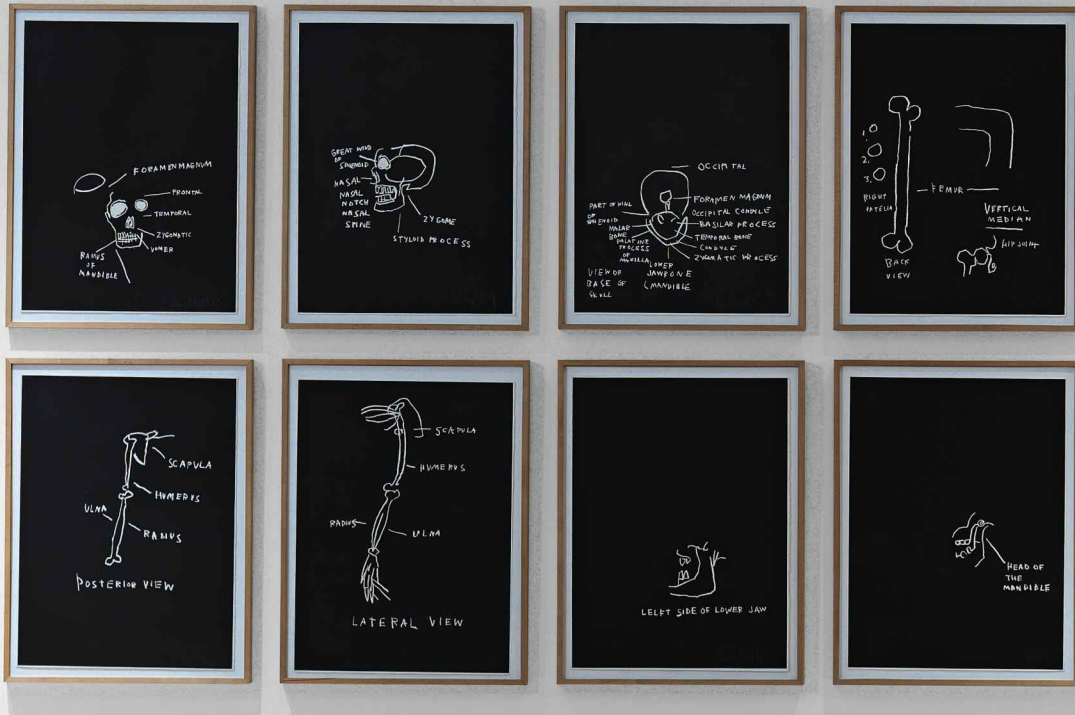 FORAMEN MAGNUM
FRONTAL
TEMPORAL
ZYGOMATIC
VOMER
RAMUS
OF
MANDIBLE
GREAT WING
OF
SPHENOID
NASAL
NASAL
NOTCH
NASAL
SPINE
ZYGOME
STYLOID PROCESS
OCCIPITAL
FORAMEN MAGNUM
OCCIPITAL CONDYLE
BASILAR PROCESS
TEMPORAL BONE
CONDYLE
ZYGOMATIC PROCESS
PART OF WING
OF SPHENOID
MALAR
BONE
PALATINE
PROCESS
OF
MAXILLA
LOWER
JAWBONE
(MANDIBLE
VIEW OF
BASE OF
SKULL
1.
2.
3.
RIGHT
PATELLA
FEMUR
BACK
VIEW
VERTICAL
MEDIAN
HIP JOINT
SCAPULA
HUMERUS
ULNA
RAMUS
POSTERIOR VIEW
SCAPULA
HUMERUS
RADIUS
ULNA
LATERAL VIEW
LELFT SIDE OF LOWER JAW
HEAD OF
THE
MANDIBLE